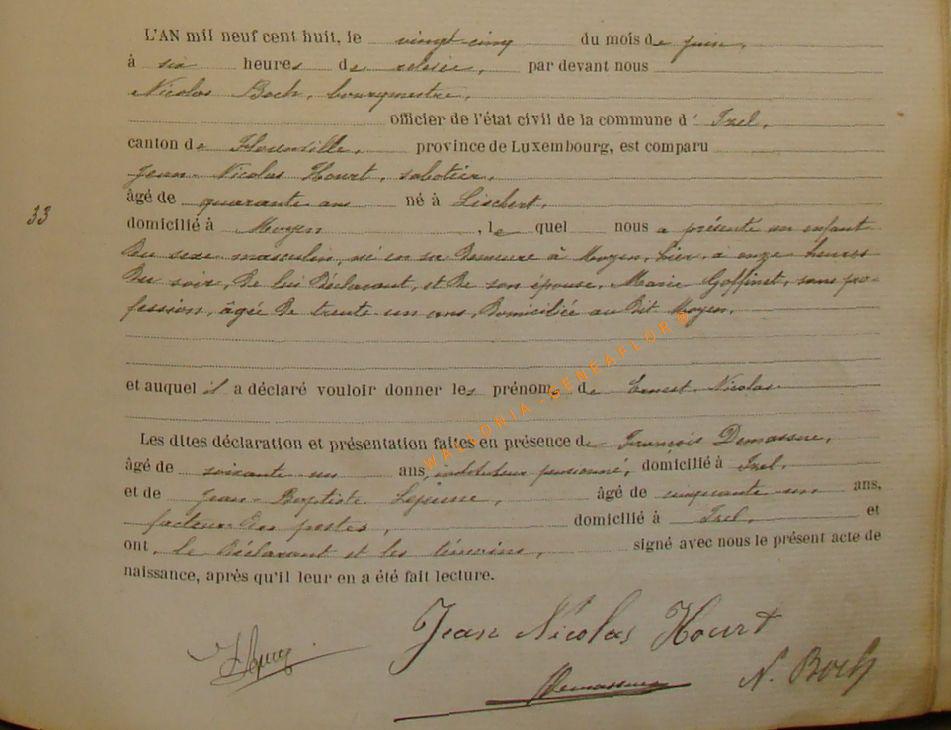 L'AN mil neuf cent huit, le vingt-cinq du mois de juin,
à six heures de relevée, par devant nous
Nicolas Boch, bourgmestre,
officier de l'état civil de la commune d' Izel,
canton de Florenville, province de Luxembourg, est comparu
Jean Nicolas Hourt, sabotier,
âgé de quarante ans né à Lischert,
33
domicilié à Moyen, le quel nous a présenté un enfant
du sexe masculin, né en sa demeure à Moyen, hier, à onze heures
du soir, de lui déclarant, et de son épouse, Marie Goffinet, sans pro-
fession, âgée de trente un ans, domiciliée au dit Moyen.
et auquel il a déclaré vouloir donner les prénoms de Ernest Nicolas
Les dites déclaration et présentation faites en présence de François Demasure,
âgé de soixante un ans, instituteur pensionné, domicilié à Izel,
et de Jean-Baptiste Lejeune, âgé de cinquante un ans,
facteur des postes, domicilié à Izel, et
ont, le déclarant et les témoins, signé avec nous le présent acte de
naissance, après qu'il leur en a été fait lecture.
Jean Nicolas Hourt
N. Boch
WALLONIA - GENEAFLOR ®